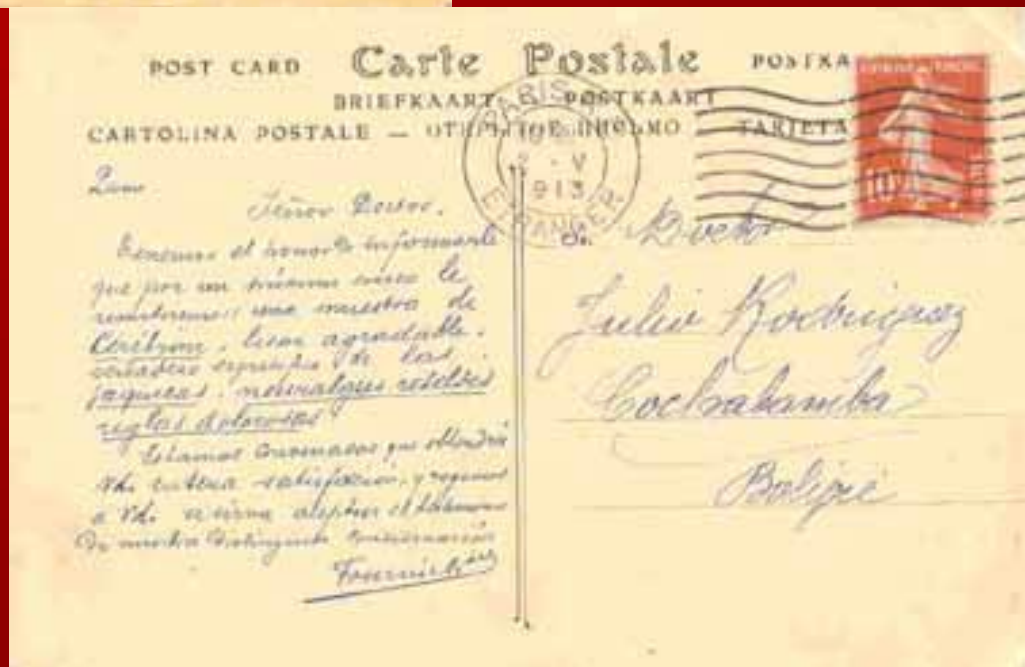 POST CARD Carte Postale POSTKA
BRIEFKAART POSTKAART
CARTOLINA POSTALE — ОТКРЫТОЕ ПИСЬМО TARJETA
PARIS
2 - V
913
ETRANGER
10
Señor Doctor.
Tenemos el honor de informarle
que por un mismo correo le
remitiremos una muestra de
agradable.
verdadero específico de las
jaquecas, neuralgias rebeldes
reglas dolorosas
Estamos que obtendrá
Vd. entera satisfacción, y rogamos
a Vd.
De nuestra Distinguida Consideración
Doctor
Julio Rodriguez
Cochabamba
Bolivie